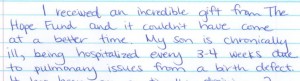 I received an incredible gift from The
Hope Fund and it couldn't have come
at a better time. My son is chronically
ill, being hospitalized every 3-4 weeks due
to pulmonary issues from a birth defect